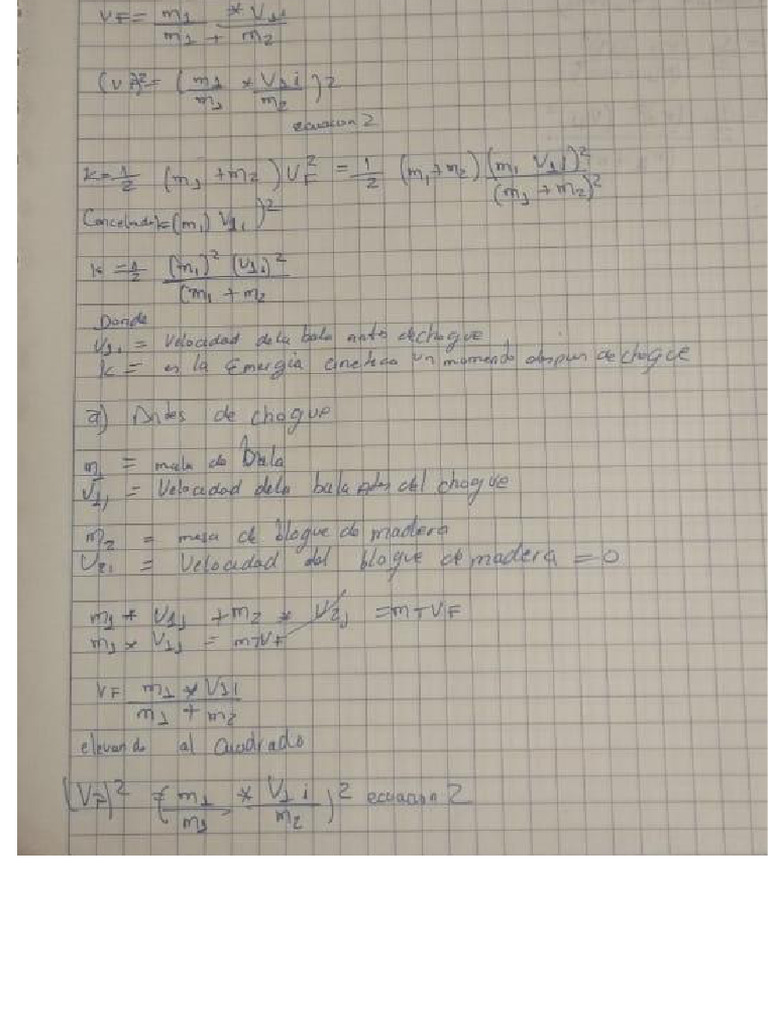 VF = m1 * V1i / m1 + m2
(VF)2 = (m1 / m1 * V1i / m2)2
ecuacion 2
k = 1/2 (m1 + m2) VF^2 = 1/2 (m1 + m2) (m1 V1i)^2 / (m1 + m2)^2
(m1) V1i)^2
k = 1/2 (m1)^2 (V1i)^2 / (m1 + m2
Donde
V1i = Velocidad de la bala antes de choque
k = es la Emergia cinetica un momento despues de choque
a) Antes de choque
m1 = masa da bala
V1i = Velocidad dela bala antes del choque
m2 = masa de bloque de madera
V2i = Velocidad del bloque de madera = 0
m1 * V1i + m2 * V2i = mTVF
m1 * V1i = mTVF
VF m1 * V1i / m1 + m2
elevando al Cuadrado
(VF)^2 = (m1 / m1 * V1i / m2)^2 ecuacion 2